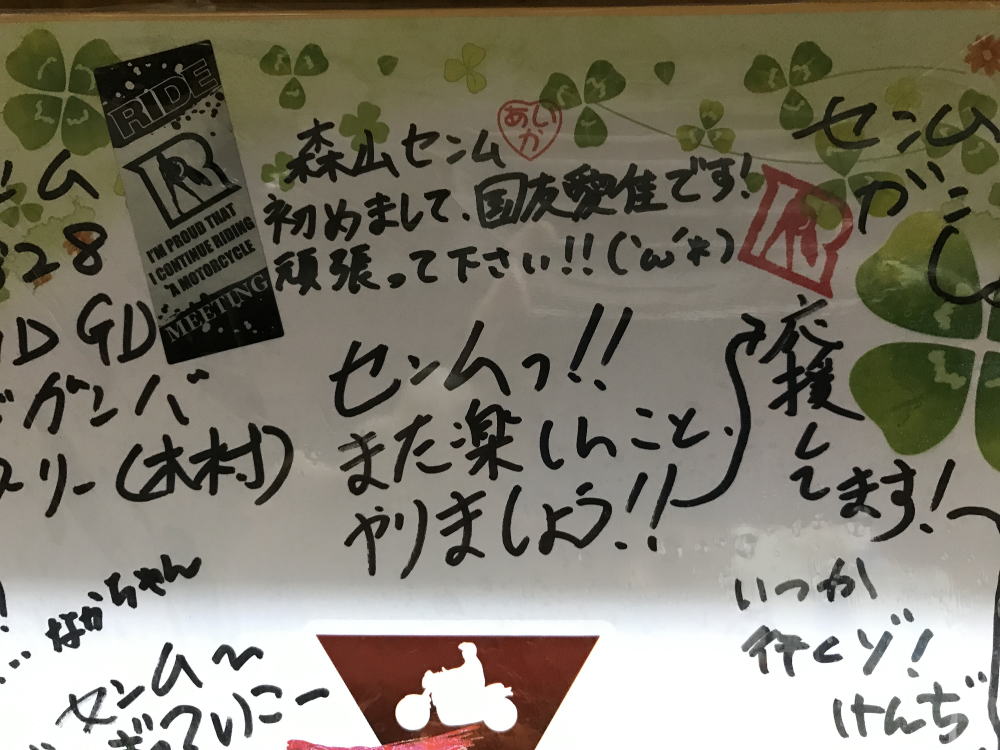 RIDE
R
I'M PROUD THAT
I CONTINUE RIDING
"A MOTORCYCLE
MEETING
森山センム
あいか
初めまして、国友愛佳です!
頑張って下さい!!(`ω´*)
センムっ!!
また楽しいこと、
やりましょう!!
R
応援
して
ます!
センム
ガン
ム
328
D GD
ガンバ
スリー(木村)
なかちゃん
センム〜
いつか
行くゾ!
けんぢ